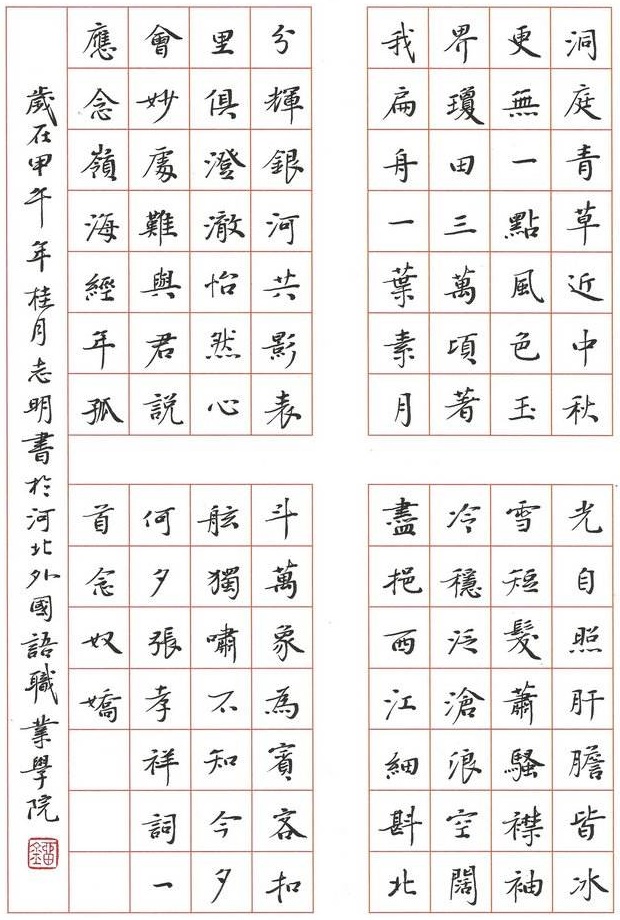 洞庭青草近中秋
更無一點風色玉
界瓊田三萬頃著
我扁舟一葉素月
分輝銀河共影表
里俱澄澈怡然心
會妙處難與君說
應念嶺海經年孤
光自照肝膽皆冰
雪短髮蕭騷襟袖
冷穩泛滄浪空闊
盡挹西江細斟北
斗萬象為賓客扣
舷獨嘯不知今夕
何夕張孝祥詞一
首念奴嬌
歲在甲午年桂月志明書於河北外國語職業學院